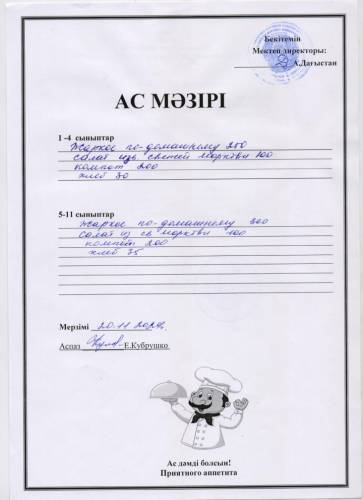 Бекітемін
Мектеп директоры:
А.Дағыстан
АС МӘЗІРІ
1-4 сыныптар
Жаркое по-домашнему 250
салат из свежей моркови 100
компот 200
хлеб 30
5-11 сыныптар
Жаркое по-домашнему 300
салат из св моркови 100
компот 200
хлеб 35
Мерзімі 20.11.2024
Аспаз Е.Кубрушко
Ас дәмді болсын!
Приятного аппетита